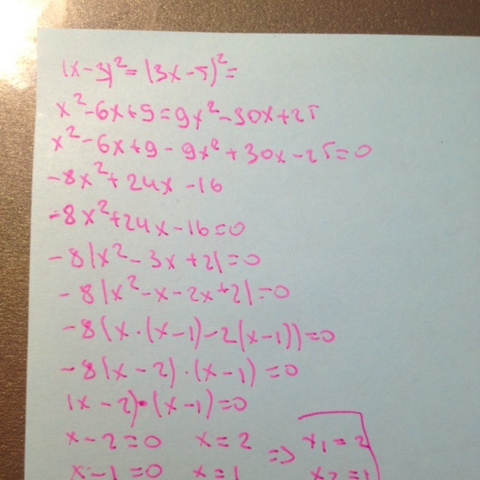 (x-3)² = (3x-5)² =
x²-6x+9=9x²-30x+25
x²-6x+9-9x²+30x-25=0
-8x²+24x-16
-8x²+24x-16=0
-8(x²-3x+2)=0
-8(x²-x-2x+2)=0
-8(x·(x-1)-2(x-1))=0
-8(x-2)·(x-1)=0
(x-2)·(x-1)=0
x-2=0 x=2 => x₁=2
x-1=0 x=1 x₂=1